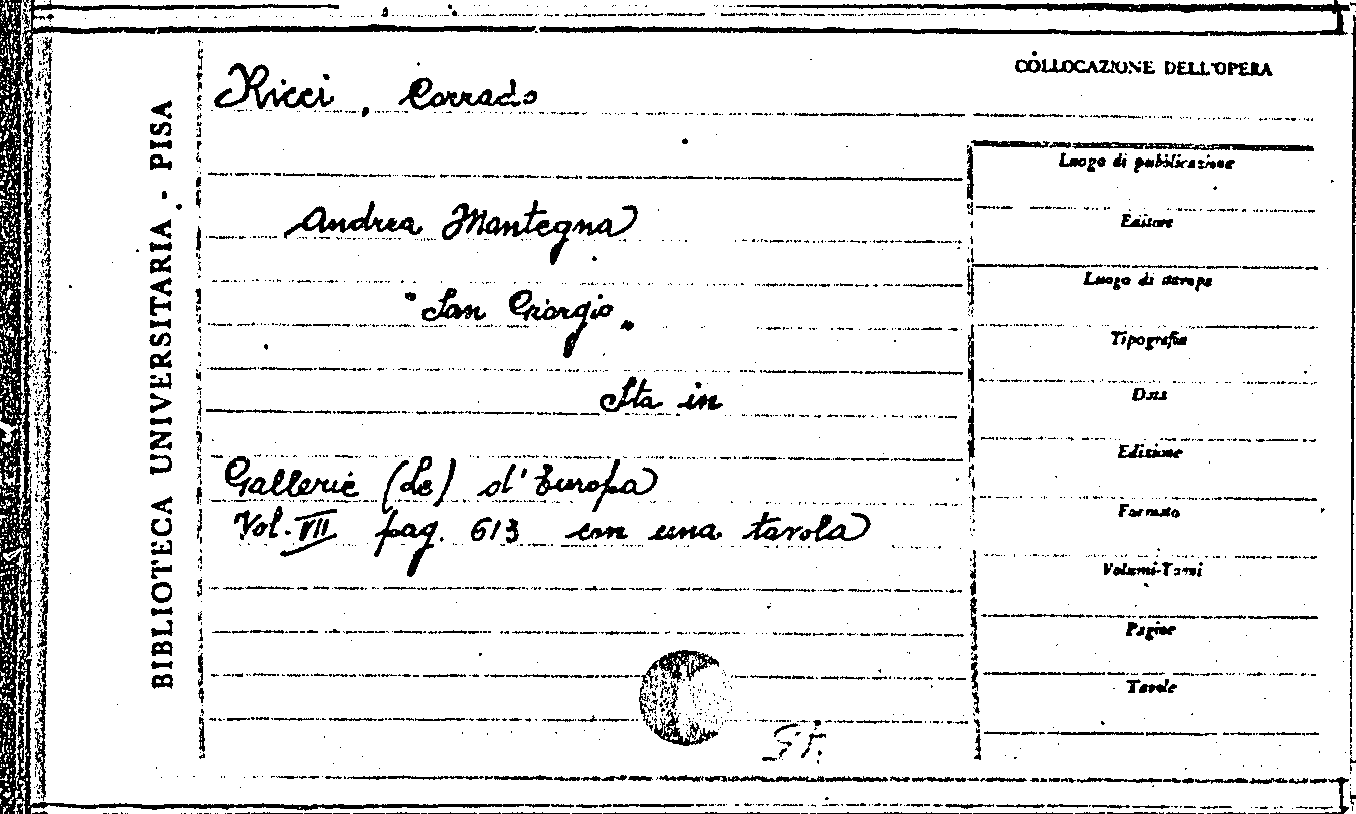 COLLOCAZIONE DELL'OPERA
Ricci, Corrado
Andrea Mantegna
"San Giorgio"
Sta in
Gallerie (Le) d'Europa
Vol. VII pag. 613 con una tavola
St.
BIBLIOTECA UNIVERSITARIA - PISA
Luogo di pubblicazione
Editore
Luogo di stampa
Tipografia
Data
Edizione
Formato
Volumi-Tomi
Pagine
Tavole